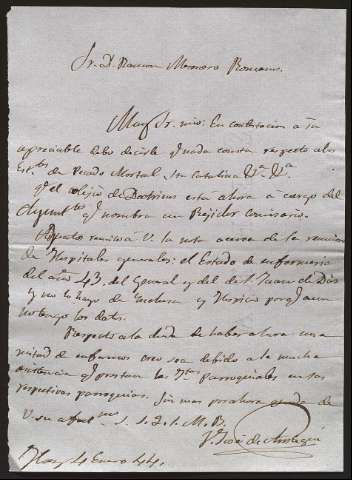 Sr. D. Ramon Mesonero Romanos.
Muy Sr. mio: En contestacion a su
apreciable debo decirle q nada consta respecto a los
Estos de Pecado Mortal, Sta Catalina
q el colejio de Doctrinos está ahora a cargo del
Ayuntto q nombra un Rejidor comisario.
remitiré a V. la nota acerca de la reunion
de Hospitales generales: el Estado de enfermeria
del año 43, del General y del de S. Juan de Dios
y no lo hago de Inclusa y Hospicio porq aun
no tengo los datos.
Respecto a la duda de haber ahora una
mitad de enfermos creo sea debido a la mucha
asistencia q prestan las Jtas Parroquiales en sus
respectivas parroquias. Sin mas por ahora queda de
V. su afmo S. S. Q. S. M. B.
José de
Hoy 4 Enero 44.